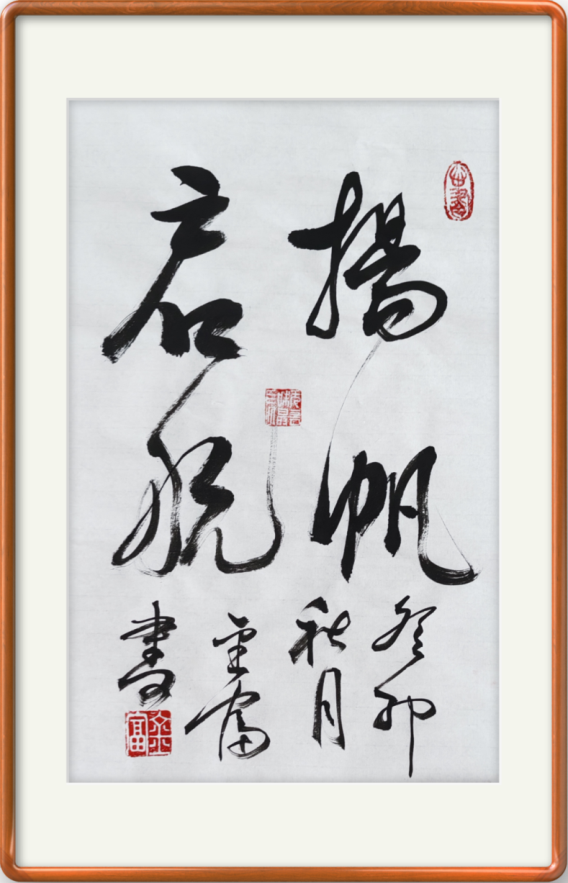 揚帆
启航
癸卯
秋月
富
書